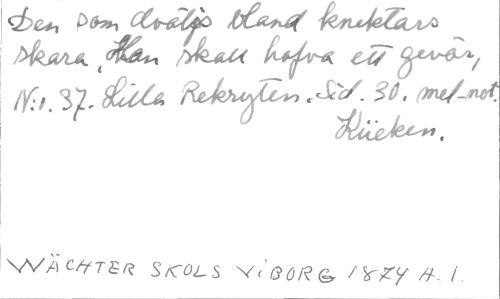 Den som dväljs bland knektars
skara, Han skall hafva ett gevär,
N:o. 37. Lilla Rekryten. Sid. 30. mel-not.
Küeken.
WÄCHTER SKOLS VIBORG 1874 H. 1.